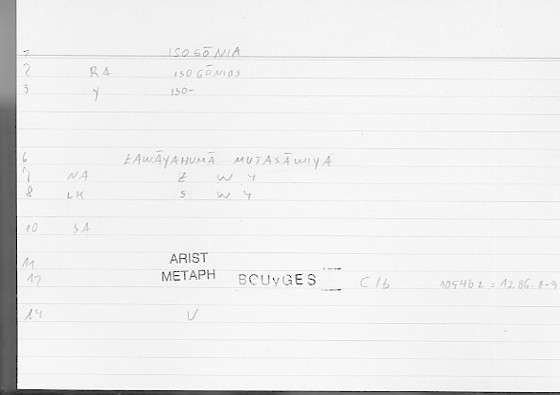 1 ISOGŌNIA
2 RA ISOGŌNIOS
3 Y ISO-
6 ZAWĀYAHUMĀ MUTASĀWIYA
7 NA Z W Y
8 LK S W Y
10 SA
11 ARIST
12 METAPH BOUYGES C16 1054b2 = 1286.8-9
14 V